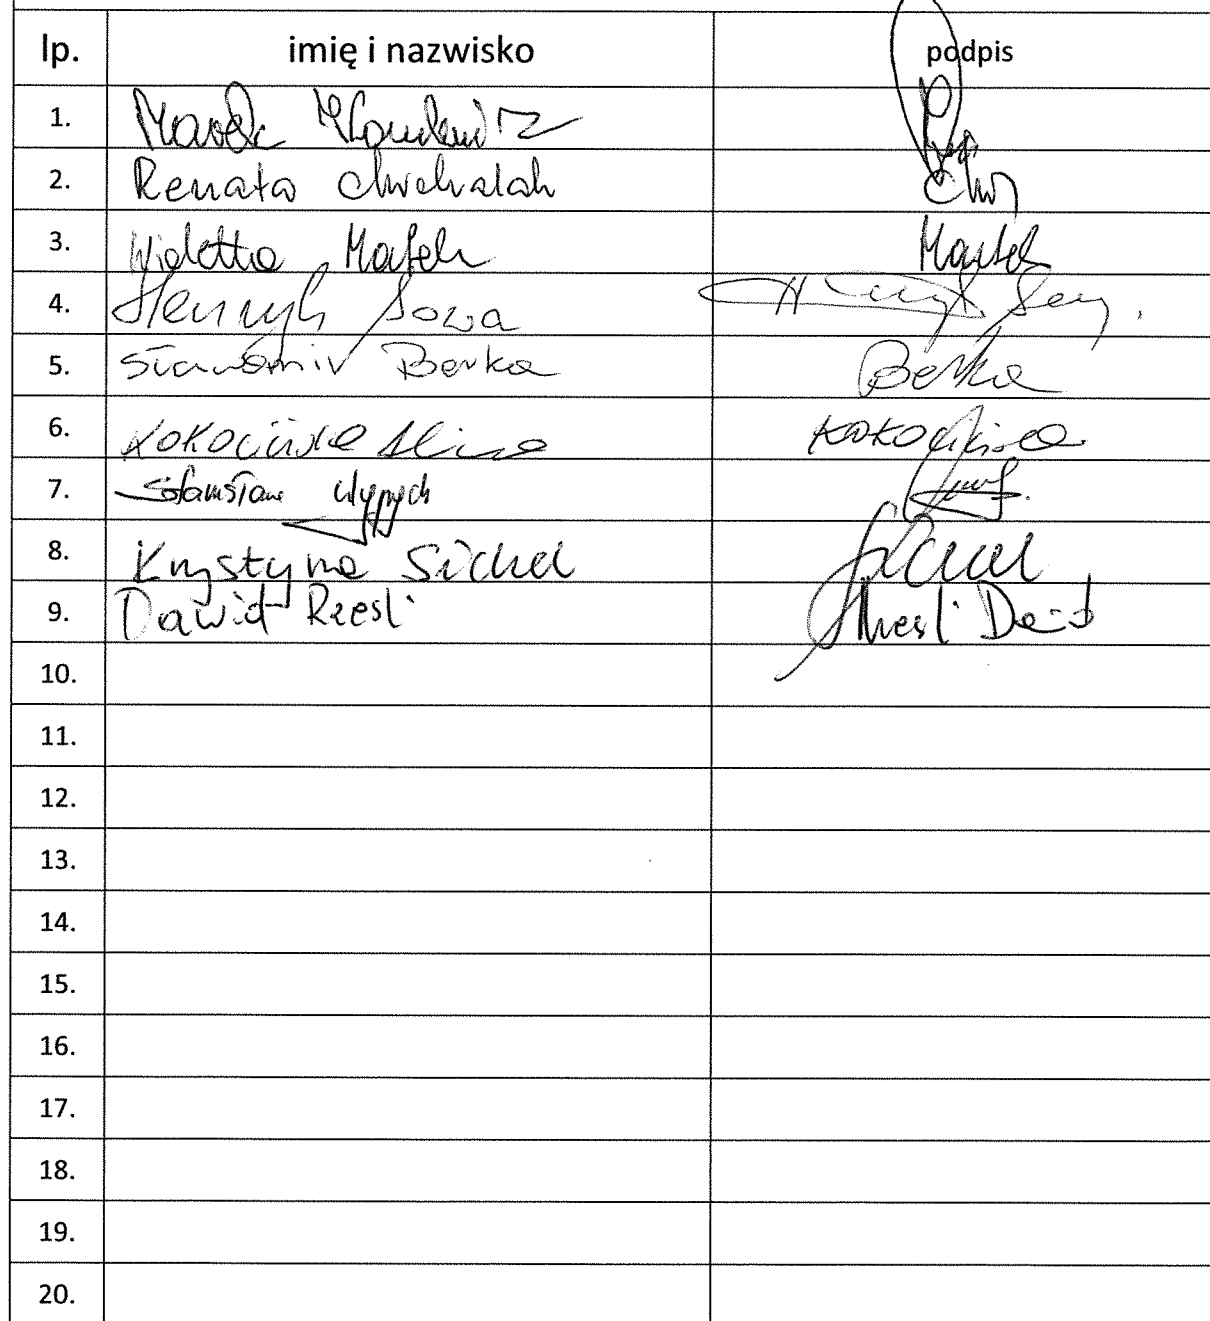 lp. imię i nazwisko podpis
1. Marek
2. Renata Chrchalah
3. Wioletta Małek Małek
4. Henryk Sowa Henryk
5. Sławomir Berka Berka
6. Kokocińska Alina Kokocińska
7. Stanisława Wypych
8. Krystyna Sichel Sichel
9. Dawid Rzesli Dawid
10.
11.
12.
13.
14.
15.
16.
17.
18.
19.
20.